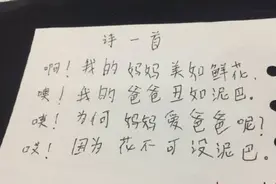 诗一首
啊！我的妈妈美如鲜花，
噢！我的爸爸丑如泥巴．
咦！为何妈妈爱爸爸呢？
哎！因为花不可没泥巴．